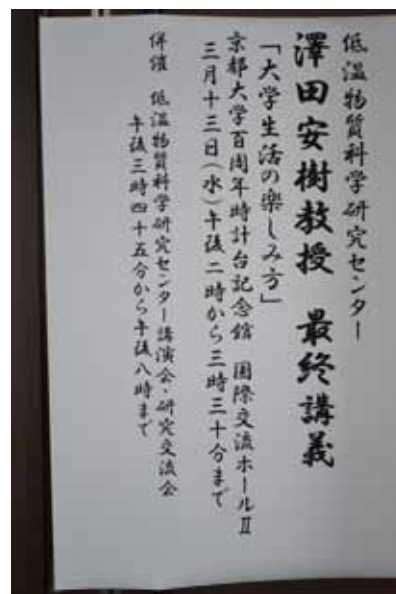 低温物質科学研究センター
澤田安樹教授　最終講義
「大学生活の楽しみ方」
京都大学百周年時計台記念館　国際交流ホールⅡ
三月十三日(水)午後二時から三時三十分まで
併催　低温物質科学研究センター講演会・研究交流会
午後三時四十五分から午後八時まで